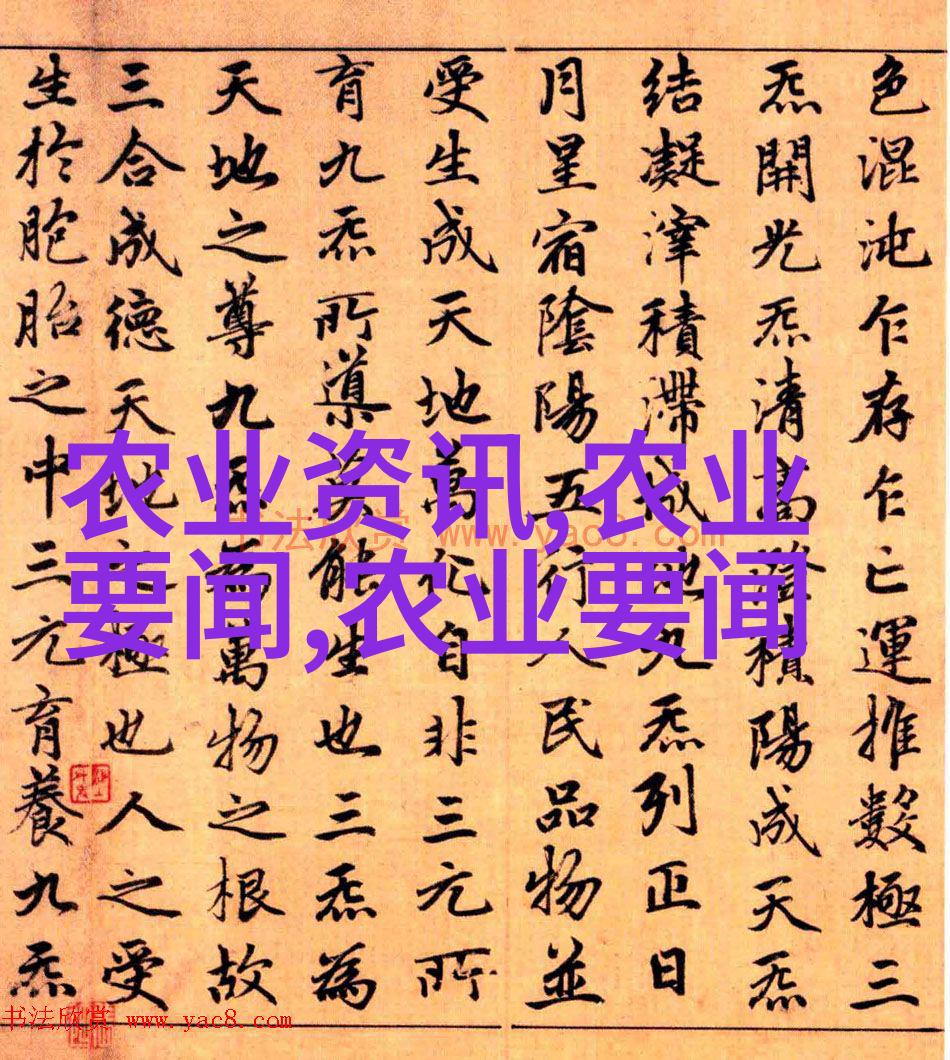 色混沌乍存乍亡運推數極三
炁開光炁清高澄積陽成天炁
結凝滓積滯成地九炁列正日
月星宿陰陽五行人民品物並
受生成天地萬化自非三元所
育九炁所導莫能生也三炁為
天地之尊九炁為萬物之根故
三合成德天地之極也人之受
生於胞胎之中三元育養九炁
农业资讯,农业
要闻,农业要闻
书法欣赏 www.yac8.com
书法欣赏 www.yac8.com